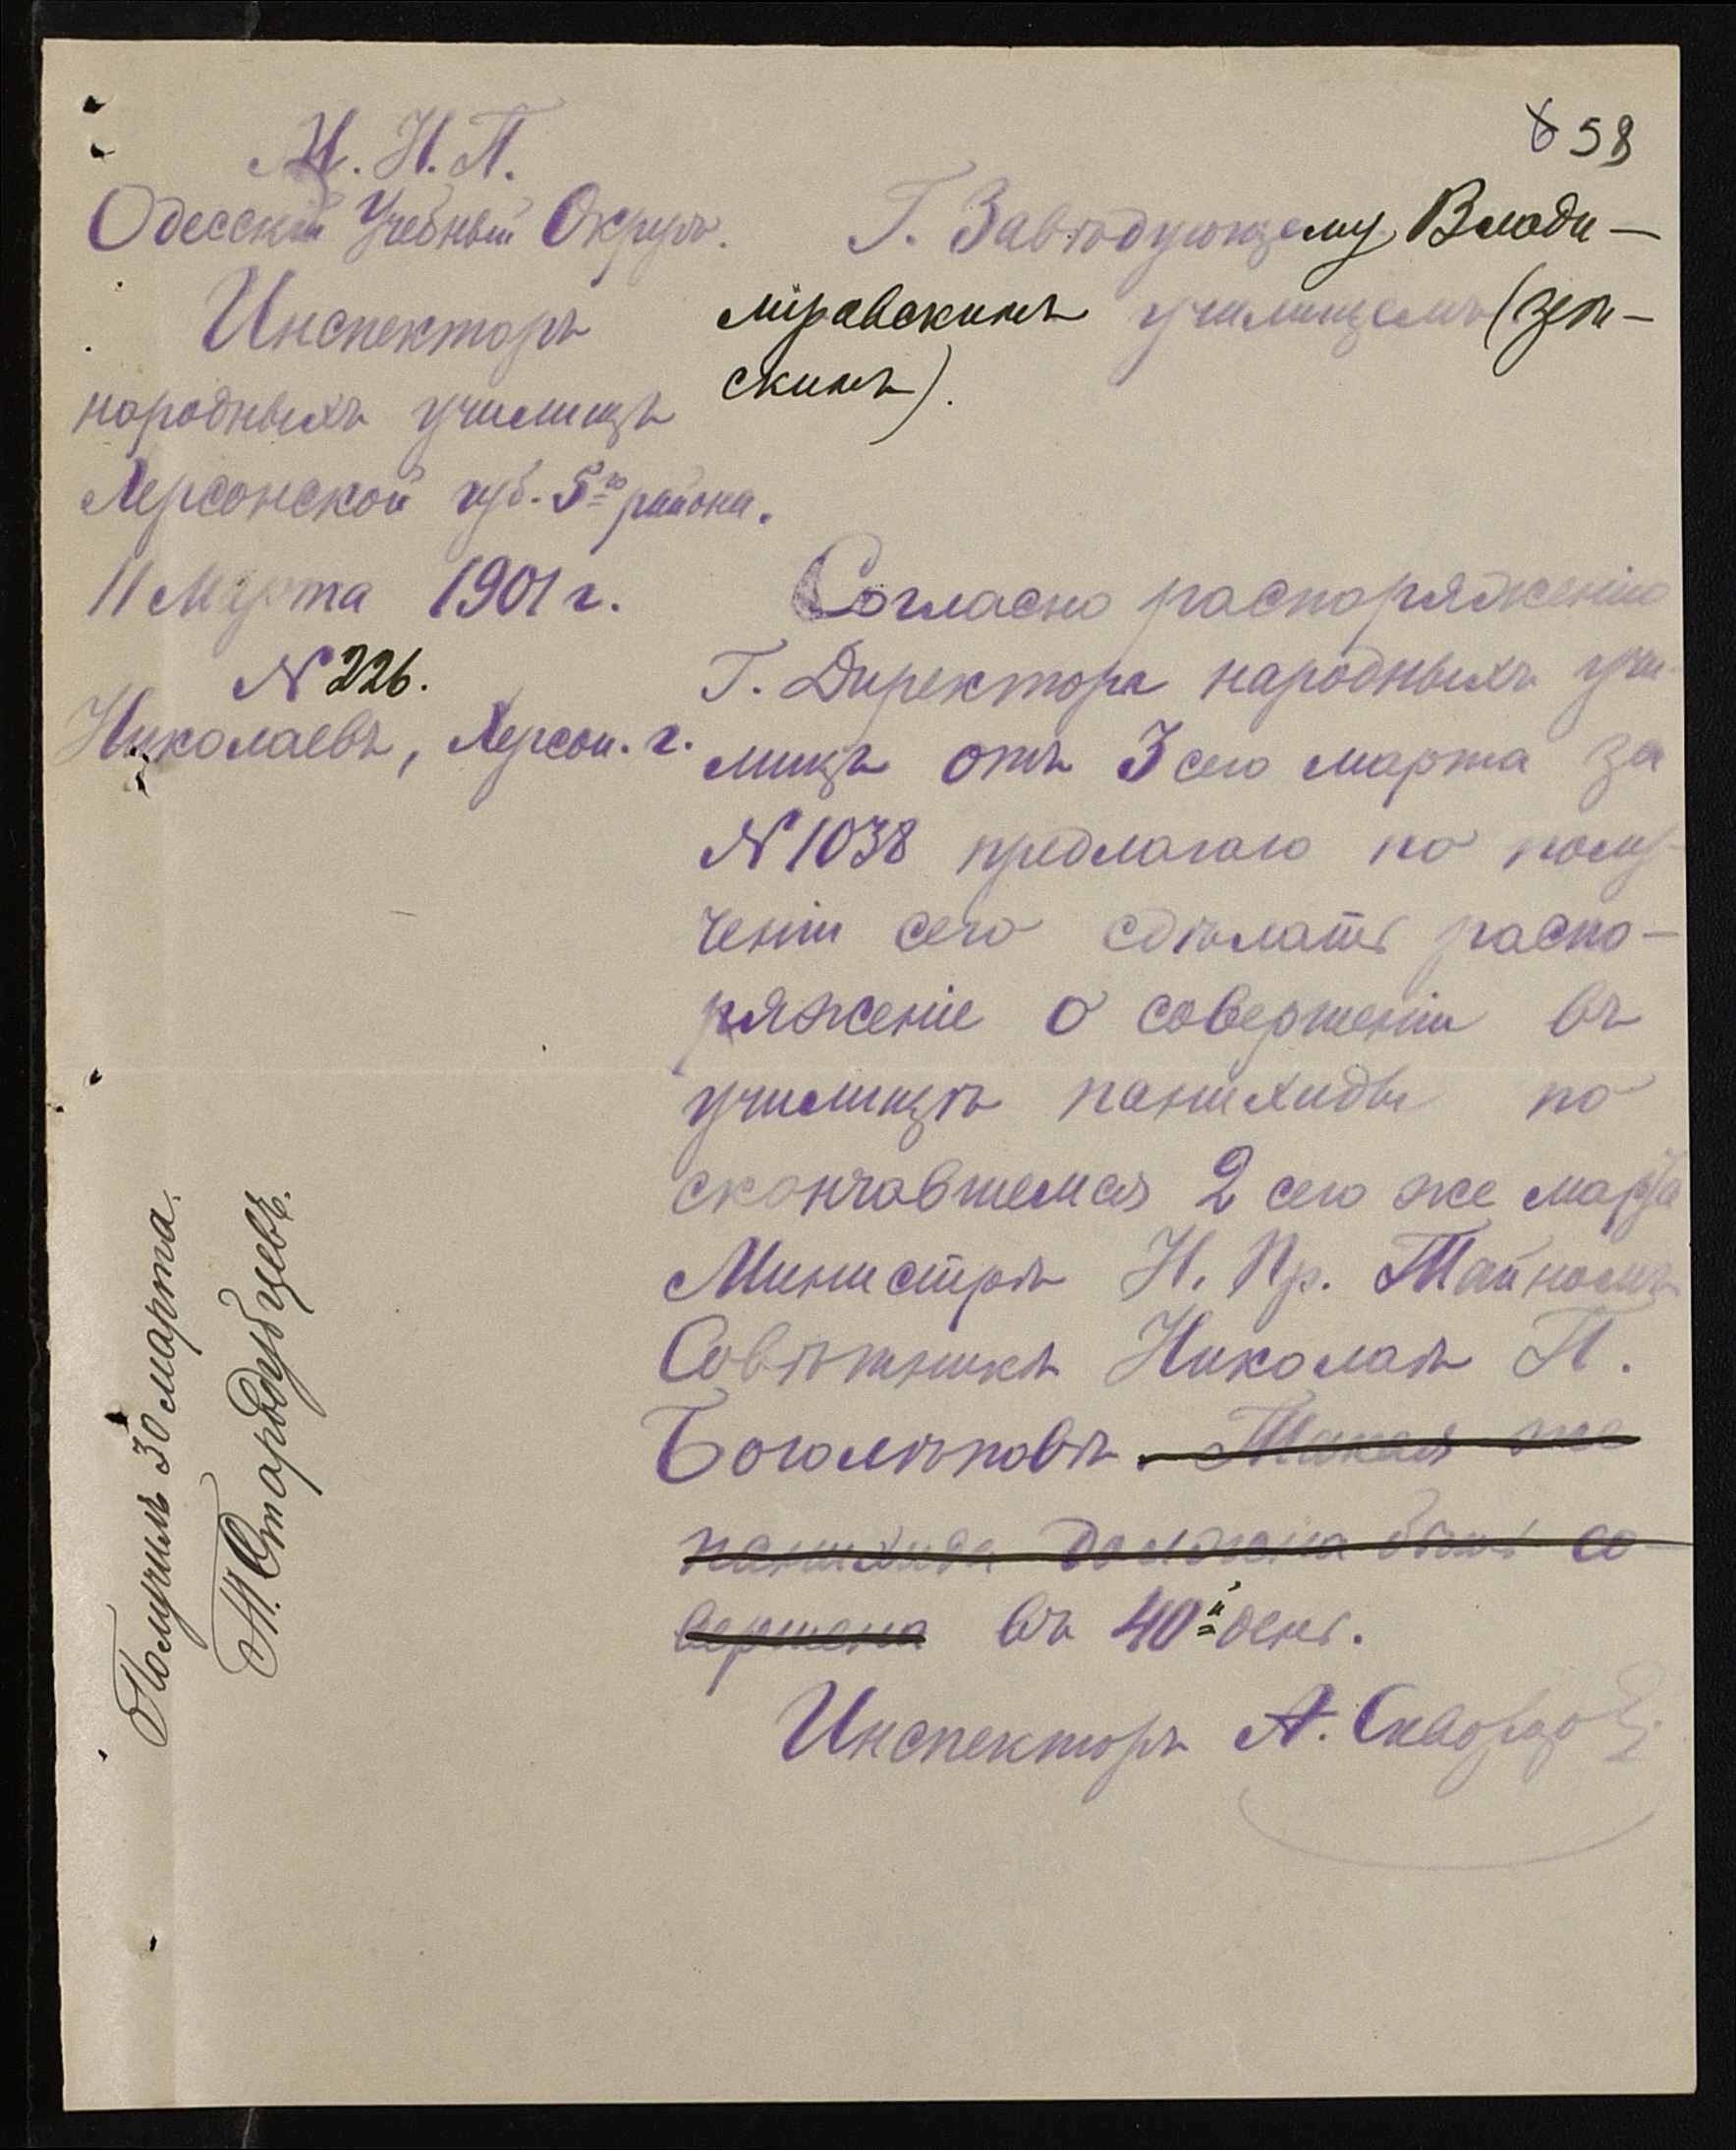 58
М. Н. П.
Одесскій Учебный Округъ.
Инспекторъ
народныхъ училищъ
Херсонской губ. 5го района.
11 Марта 1901 г.
№ 226.
Николаевъ, Херсон. г.
Г. Завѣдующему Влади-
міровскимъ училищемъ (зем-
скимъ).
Согласно распоряженію
Г. Директора народныхъ учи-
лищъ отъ 3 сего марта за
№ 1038 предлагаю по полу-
ченіи сего сдѣлать распо-
ряженіе о совершеніи въ
училищѣ панихиды по
скончавшемся 2 сего же марта
Министрѣ Н. Пр. Тайномъ
Совѣтникѣ Николаѣ П.
Боголѣповѣ. Такая же
панихида должна быть со-
вершена въ 40й день.
Инспекторъ А. Скворцов
Получилъ 30 марта.
М. Стародубцевъ.